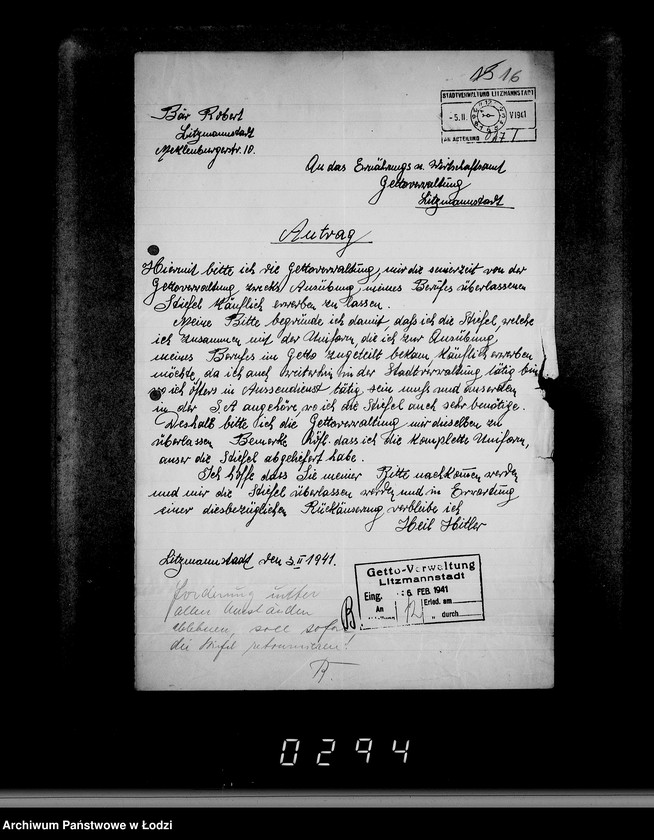 16
STADTVERWALTUNG LITZMANNSTADT
- 5. II. V 1941
AN ABTEILUNG 027
Bär Robert
Litzmannstadt
Mecklenburgerstr. 10.
An das Ernährungs u. Wirtschaftsamt
Gettoverwaltung
Litzmannstadt
Antrag
Hiermit bitte ich die Gettoverwaltung, mir die seinerzeit von der
Gettoverwaltung zwecks Ausübung meines Berufes überlassenen
Stiefel käuflich erwerben zu lassen.
Meine Bitte begründe ich damit, daß ich die Stiefel, welche
ich zusammen mit der Uniform, die ich zur Ausübung
meines Berufes im Getto zugeteilt bekam, käuflich erwerben
möchte, da ich auch weiterhin in der Stadtverwaltung tätig bin
wo ich öfters in Aussendienst tätig sein muß und ausserdem
in der S.A angehöre, wo ich die Stiefel auch sehr benötige.
Deshalb bitte ich die Gettoverwaltung mir dieselben zu
überlassen. Bemerke höfl. dass ich die komplette Uniform,
auser die Stiefel abgeliefert habe.
Ich hoffe dass Sie meiner Bitte nachkommen werden
und mir die Stiefel überlassen werden und in Erwartung
einer diesbezüglichen Rückäuserung verbleibe ich
Heil Hitler
Litzmannstadt den 3.II 1941.
Getto-Verwaltung
Litzmannstadt
Eing. 6. FEB. 1941
An Erled. am
" durch
Forderung unter
allen Umständen
ablehnen, soll sofort
die Stiefel retournieren!
0294
Archiwum Państwowe w Łodzi